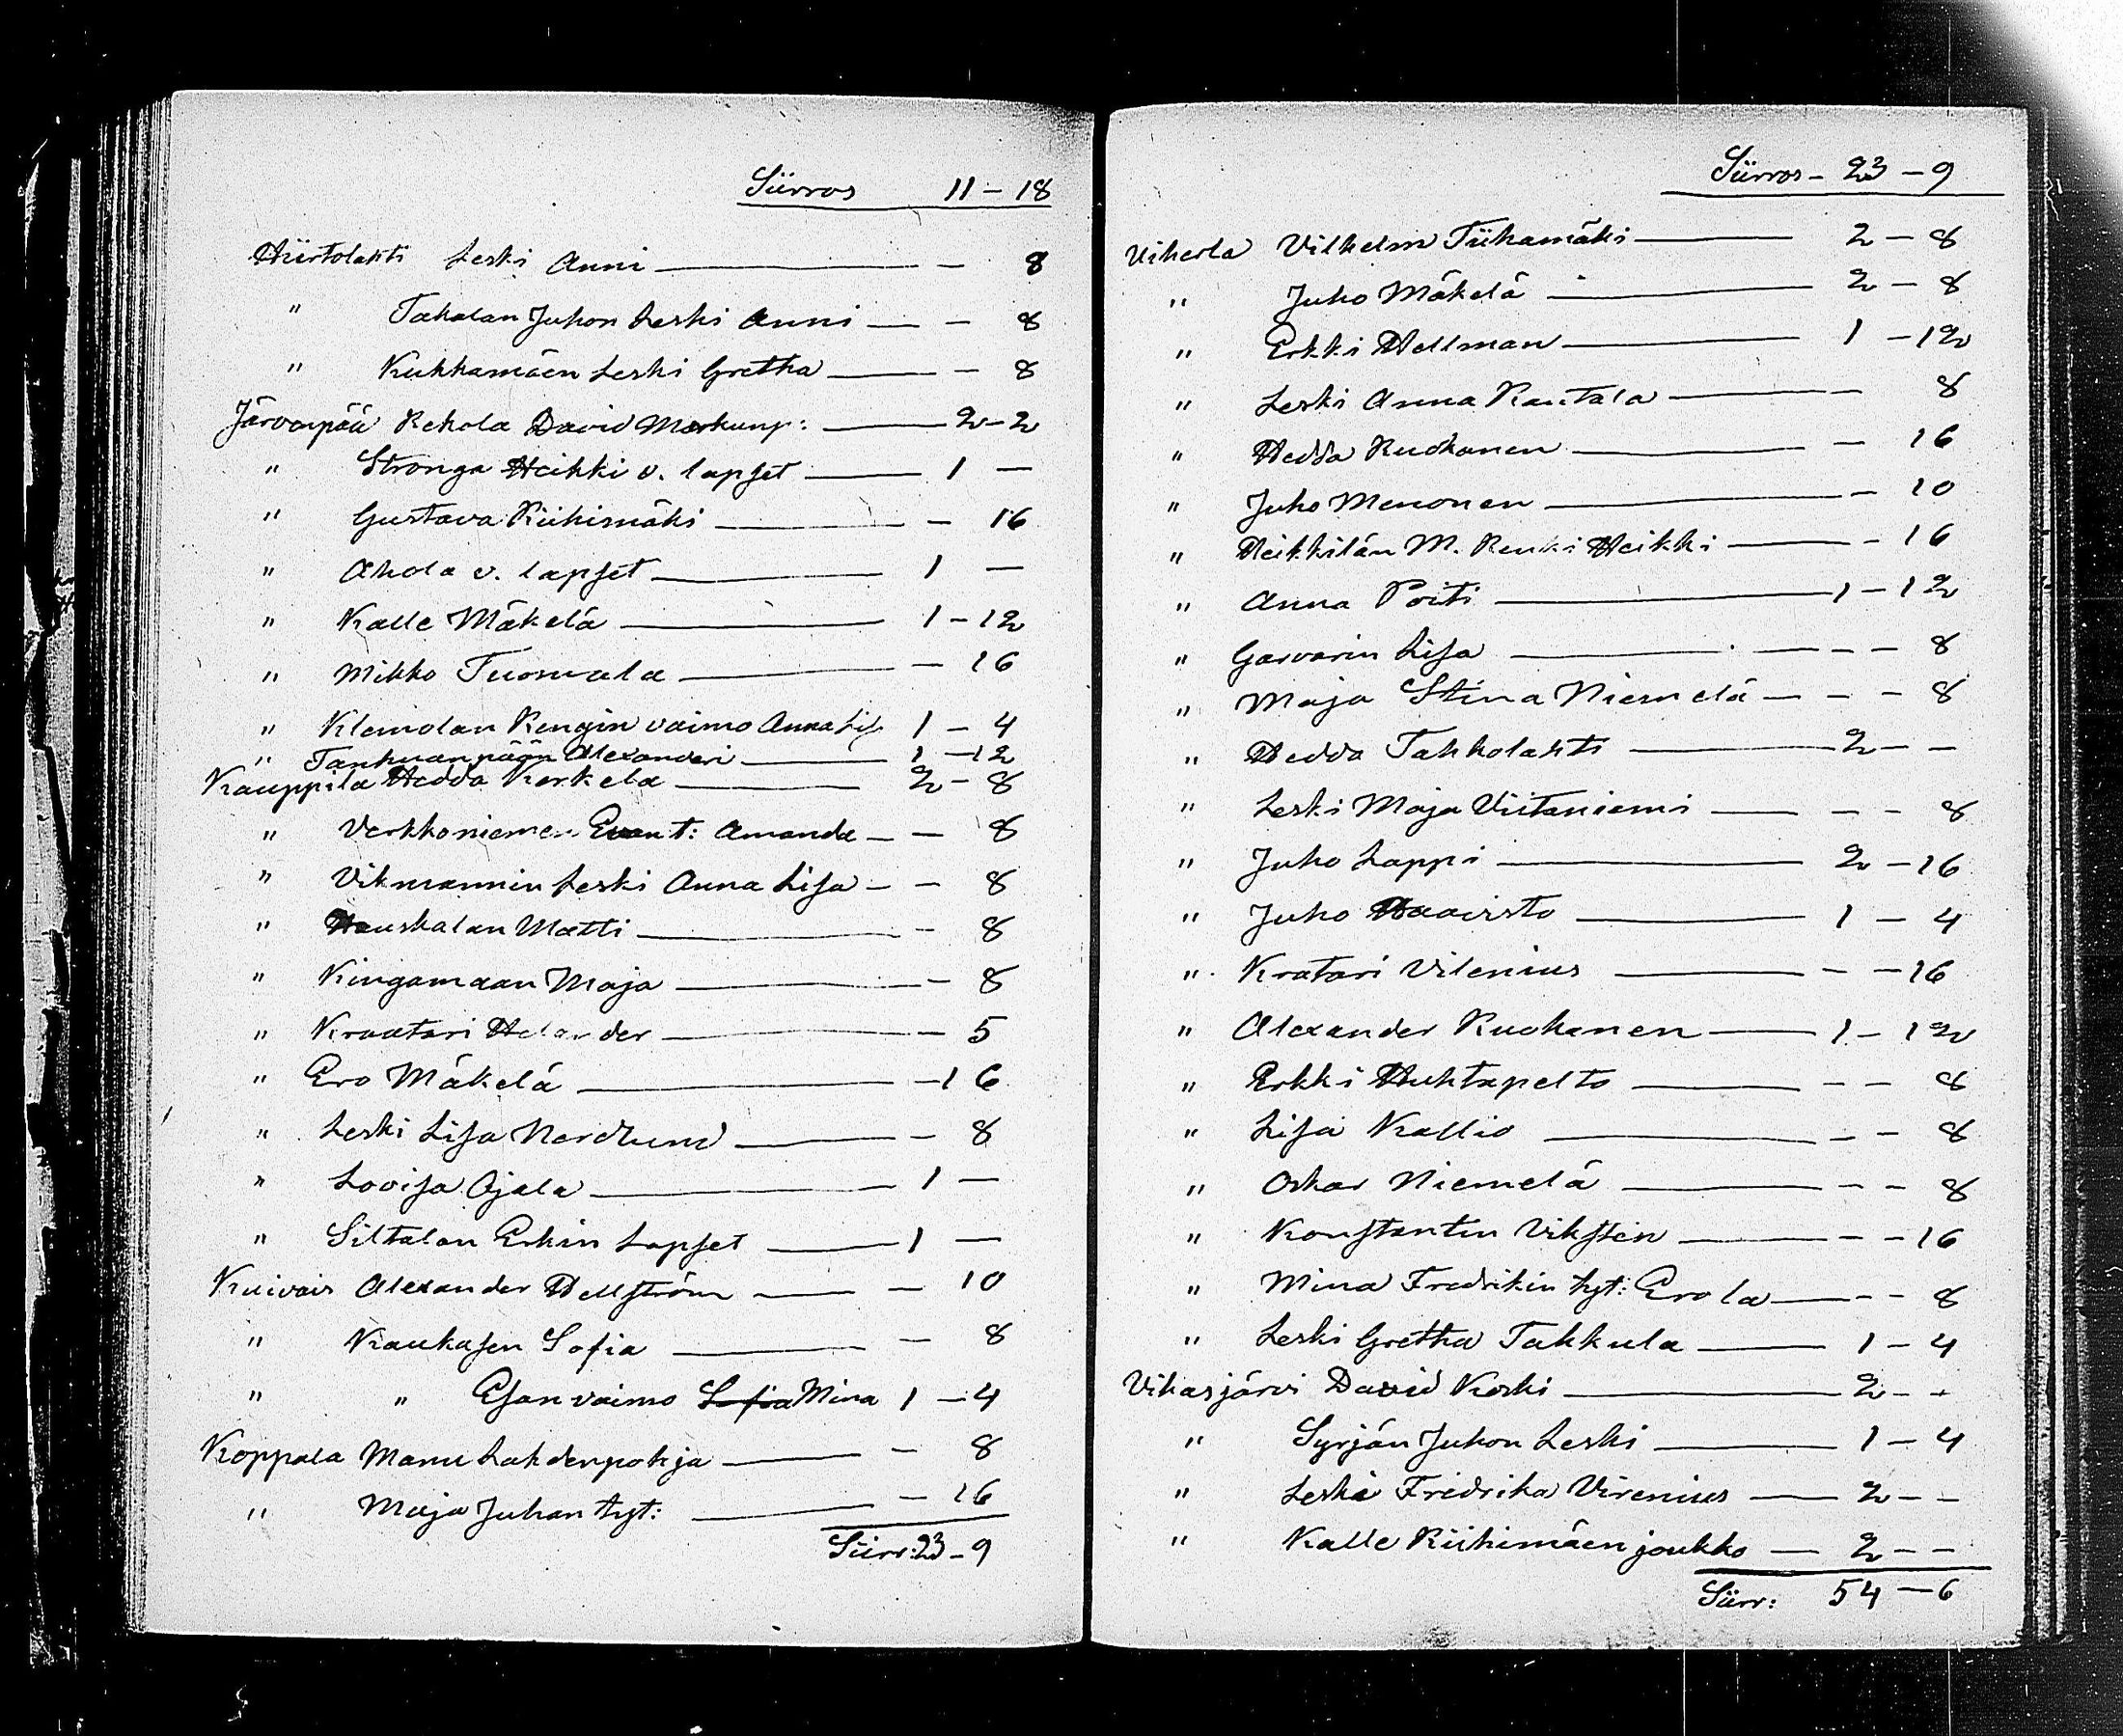 Siirros 11 - 18
Hiirtolahti Leski Anni — - 8
" Takalan Juhon Leski Anni — - 8
" Kukkamäen Leski Gretha — - 8
Järvenpää Rekola David Markunp: — 2 - 2
" Stronga Heikki v. lapset — 1 —
" Gustava Riihimäki — - 16
" Ahola v. lapset — 1 —
" Kalle Mäkelä — 1 - 12
" Mikko Tuomala — - 16
" Klemolan Rengin vaimo Anna Lis 1 - 4
" Tanhuanpään Alexanderi — 1 - 12
Kauppila Hedda Kerkela — 2 - 8
" Verkkoniemen t: Amanda — - 8
" Vikmannin Leski Anna Lisa — - 8
" Hauskalan Matti — - 8
" Kingamaan Maja — - 8
" Kraatari Helander — - 5
" Ero Mäkelä — - 16
" Leski Lisa Nordlund — - 8
" Lovisa Ojala — 1 —
" Siltalan Erkin Lapset — 1 —
Kuivais Alexander Hellström — - 10
" Kaukasen Sofia — - 8
" " Esan vaimo Sofia Mina 1 - 4
Koppala Manu Lahdenpohja — - 8
" Maja Juhan tyt: — - 16
Siirr: 23 - 9
Siirros - 23 - 9
Viherla Vilhelm Tiihamäki — 2 - 8
" Juho Mäkelä — 2 - 8
" Erkki Hellman — 1 - 12
" Leski Anna Rautala — - 8
" Hedda Ruohonen — - 16
" Juho Menonen — - 10
" Heikkilän M. Renki Heikki — - 16
" Anna Poiti — 1 - 12
" Garvarin Lisa — - - 8
" Maja Stina Niemelä — - - 8
" Hedda Takkolahti — 2 - -
" Leski Maja Viitaniemi — - - 8
" Juho Lappi — 2 - 16
" Juho Haavisto — 1 - 4
" Kratari Vilenius — - - 16
" Alexander Ruohonen — 1 - 12
" Erkki Huhtapelto — - - 8
" Lisa Kallio — - - 8
" Oskar Niemelä — - - 8
" Konstantin Vikstén — - - 16
" Mina Fredrikin tyt: Erola — - - 8
" Leski Gretha Takkula — 1 - 4
Vihasjärvi David Koski — 2 - -
" Syrjän Juhon Leski — 1 - 4
" Leski Fridrika Virenius — 2 - -
" Kalle Riihimäen joukko — 2 - -
Siirr: 54 - 6